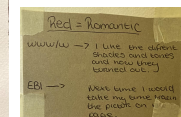 Red = Romantic
WWW/W → I Like the difrent
shades and tones
and how they
torned out.
EBI → Next time I would
take my time
the
page